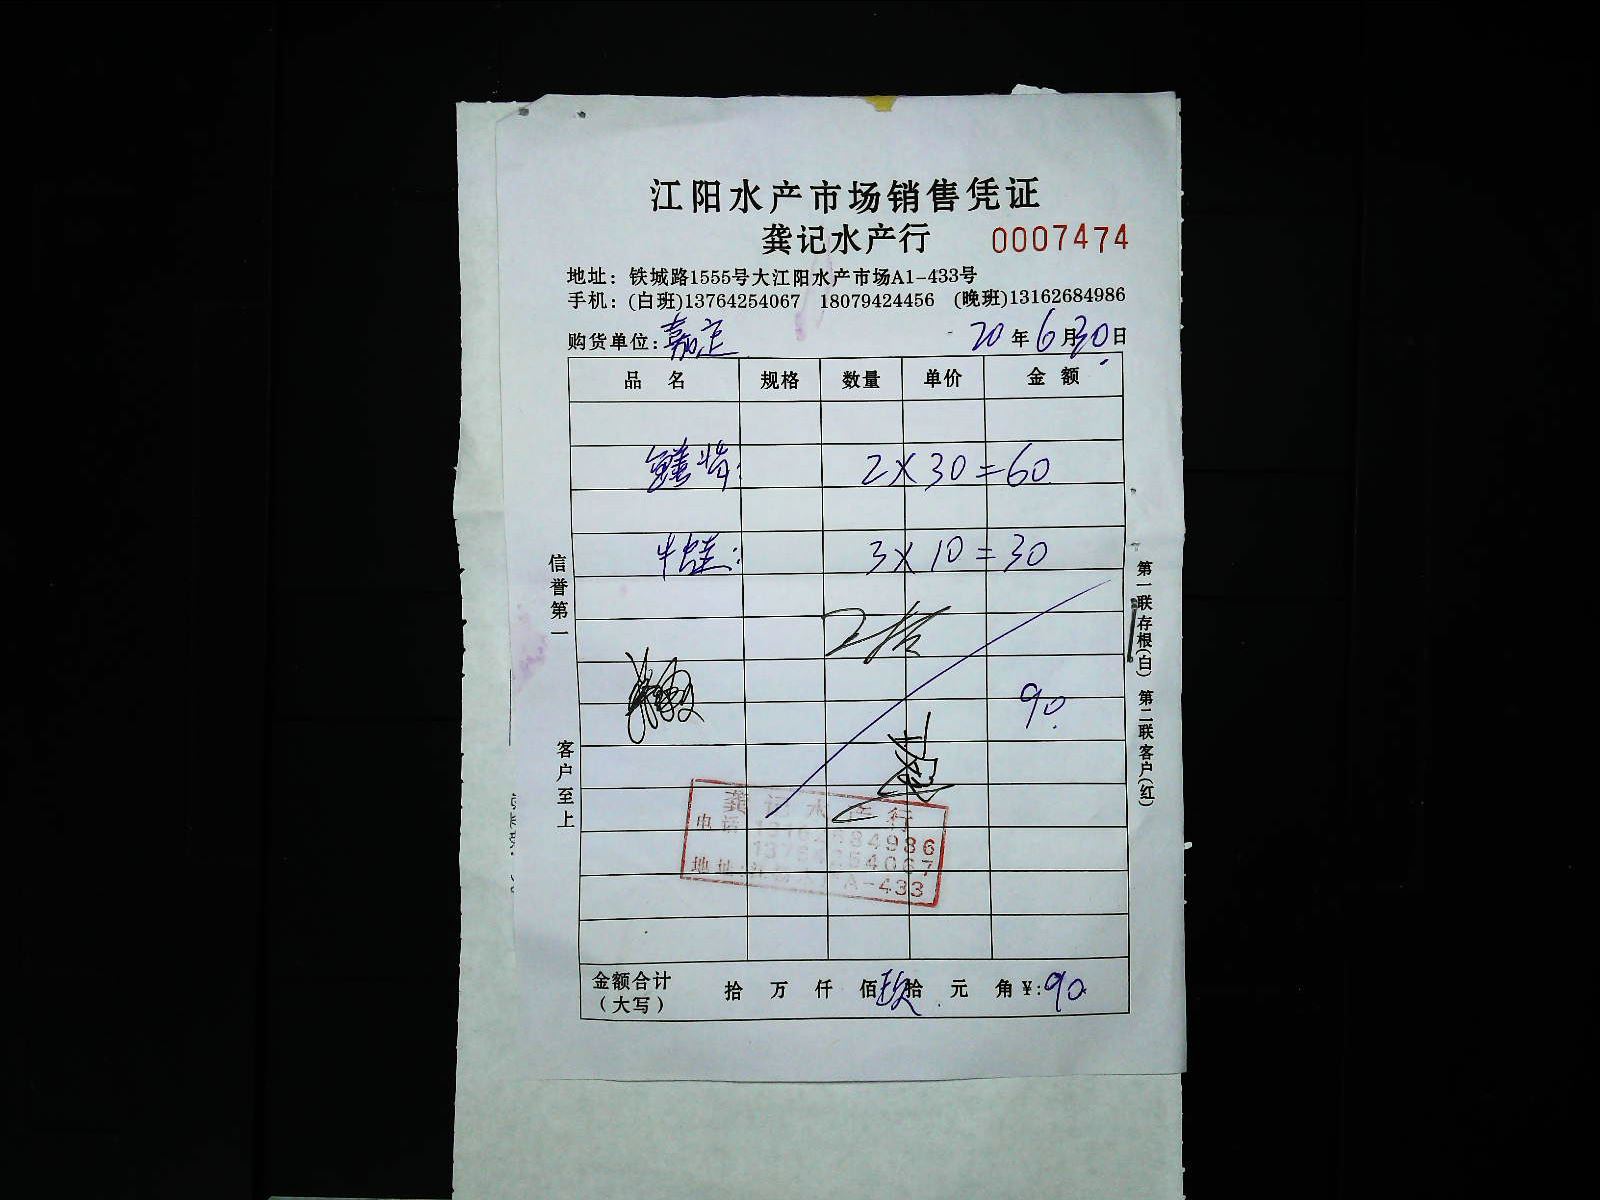 江阳水产市场销售凭证
龚记水产行 0007474
地址：铁城路1555号大江阳水产市场A1-433号
手机：(白班)13764254067 18079424456 (晚班)13162684986
购货单位：嘉定 20年6月30日
品名 规格 数量 单价 金额
鳝 2×30=60
牛蛙： 3×10=30
90
龚记水产行
电话 13162684986
13764254067
地址: A-433
金额合计
（大写）
拾 万 仟 佰 玖拾 元 角 ¥:90
信誉第一
客户至上
第一联存根(白) 第二联客户(红)